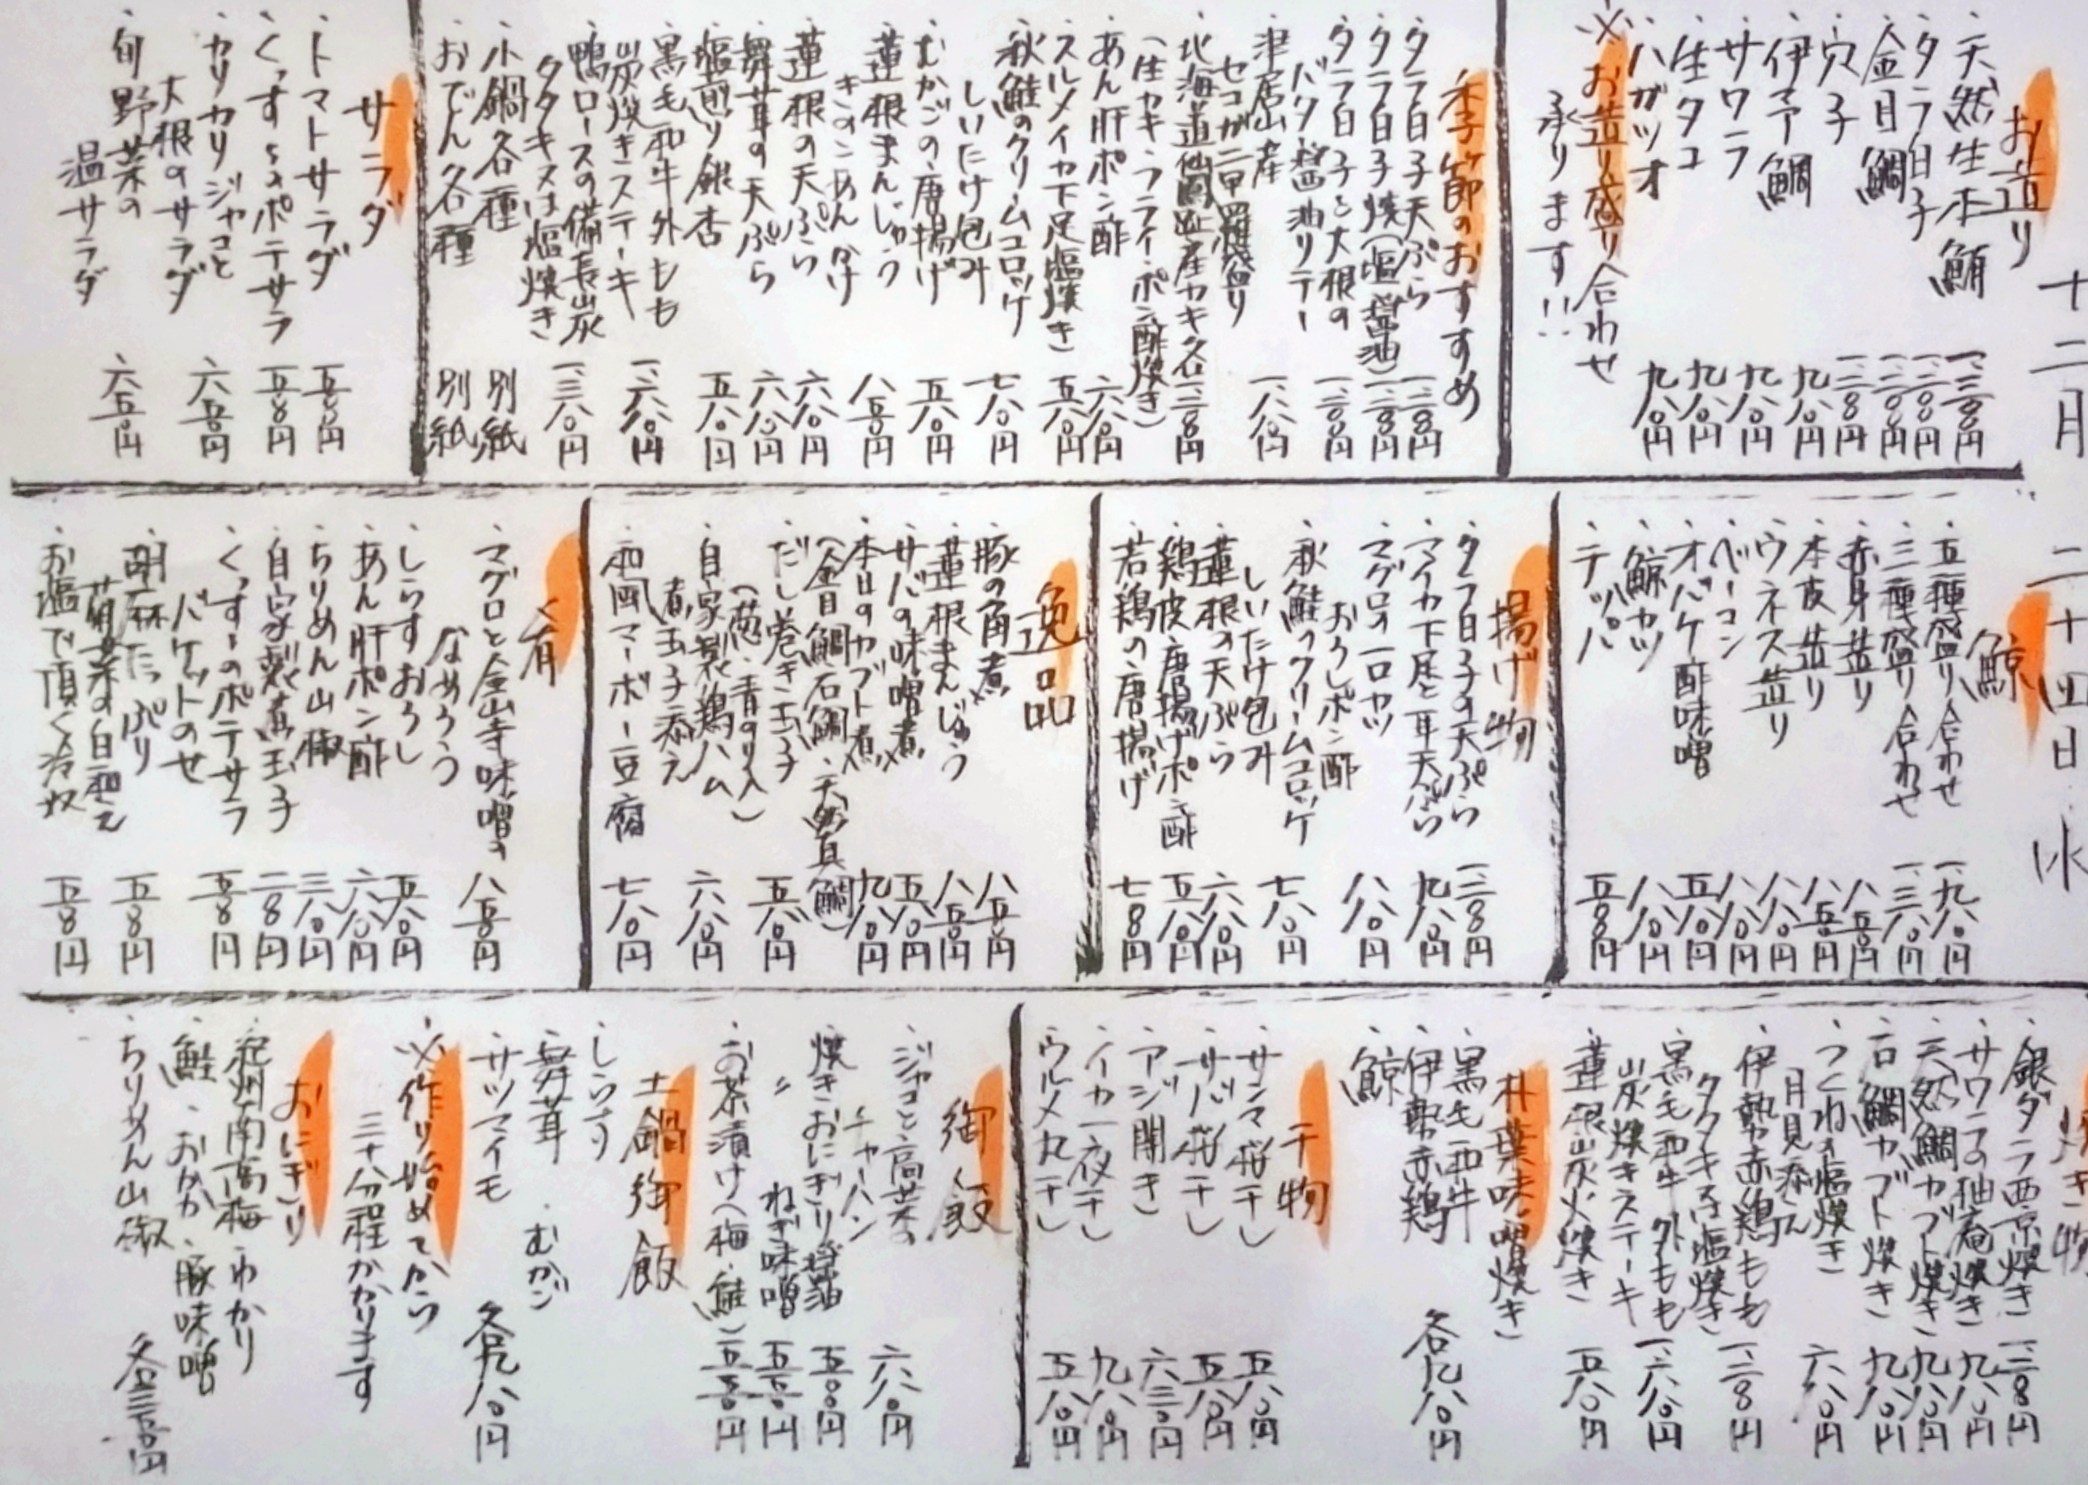 十二月二十四日 水
お造り
・天然生本鮪 一、三八〇円
・タラ白子 一、二八〇円
・金目鯛 一、二八〇円
・穴子 一、二八〇円
・伊予鯛 九八〇円
・サワラ 九八〇円
・生タコ 九八〇円
・ハガツオ 九八〇円
※お造り盛り合わせ
承ります!!
季節のおすすめ
・タラ白子天ぷら 一、二八〇円
・タラ白子焼(塩・醤油) 一、二八〇円
・タラ白子と大根の
バター醤油ソテー 一、二八〇円
・津居山産
セコガニ甲羅盛り 一、八八〇円
・北海道仙鳳趾産カキ各一、二八〇円
(生カキ・フライ・ポン酢焼き)
・あん肝ポン酢 六八〇円
・スルメイカ下足塩焼き 五八〇円
・秋鮭のクリームコロッケ
しいたけ包み 七八〇円
・むかごの唐揚げ 五八〇円
・蓮根まんじゅう
きのこあんかけ 八五〇円
・蓮根の天ぷら 六八〇円
・舞茸の天ぷら 六八〇円
・塩煎り銀杏 五八〇円
・黒毛和牛外もも
炭焼きステーキ 一、六八〇円
・鴨ロースの備長炭
タタキ又は塩焼き 一、三八〇円
・小鍋各種 別紙
・おでん各種 別紙
サラダ
・トマトサラダ 五五〇円
・くっすんポテサラ 五五〇円
・カリカリジャコと
大根のサラダ 六五〇円
・旬野菜の
温サラダ 六五〇円
鯨
・五種盛り合わせ 一、九八〇円
・三種盛り合わせ 一、三八〇円
・赤身造り 八五〇円
・本皮造り 八五〇円
・ウネス造り 八八〇円
・ベーコン 八八〇円
・オバケ酢味噌 五八〇円
・鯨カツ 八八〇円
・テッパ 五五〇円
揚げ物
・タラ白子の天ぷら 一、二八〇円
・マイカ下足と耳天ぷら 九八〇円
・マグロの一口カツ
おろしポン酢 八八〇円
・秋鮭のクリームコロッケ
しいたけ包み 七八〇円
・蓮根の天ぷら 六八〇円
・鶏皮唐揚げポン酢 五八〇円
・若鶏の唐揚げ 七八〇円
逸品
・豚の角煮 八五〇円
・蓮根まんじゅう 八五〇円
・サバの味噌煮 五八〇円
・本日のカブト煮 九八〇円
(金目鯛・石鯛・天然真鯛)
・だし巻き玉子 五八〇円
(葱・青のり入)
・自家製鶏ハム
煮玉子添え 六八〇円
・和風マーボー豆腐 七八〇円
肴
・マグロと金山寺味噌の
なめろう 八五〇円
・しらすおろし 五八〇円
・あん肝ポン酢 六八〇円
・ちりめん山椒 三八〇円
・自家製煮玉子 二八〇円
・くっすんのポテサラ
バケットのせ 五五〇円
・胡麻たっぷり
菊菜の白和え 五八〇円
・お塩で頂く冷奴 五五〇円
焼き物
・銀ダラ西京焼き 一、二八〇円
・サワラの柚庵焼き 九八〇円
・天然鯛カブト焼き 九八〇円
・石鯛カブト焼き 九八〇円
・つくねの塩焼き
月見添え 六八〇円
・伊勢赤鶏もも
タタキ又は塩焼き 一、二八〇円
・黒毛和牛外もも
炭焼きステーキ 一、六八〇円
・蓮根炭火焼き 五八〇円
朴葉味噌焼き
・黒毛和牛
・伊勢赤鶏 各九八〇円
・鯨
干物
・サンマ桜干し 五八〇円
・サバ桜干し 五八〇円
・アジ開き 六三〇円
・イカ一夜干し 九八〇円
・ウルメ丸干し 五八〇円
御飯
・ジャコと高菜の
チャーハン 六八〇円
・焼きおにぎり醤油 五五〇円
・〃 ねぎ味噌 五五〇円
・お茶漬け(梅・鮭) 五五〇円
土鍋御飯
・しらす
・舞茸 ・むかご
・サツマイモ 各九八〇円
※作り始めてから
三十分程かかります
おにぎり
・紀州南高梅・わかり
・鮭・おかか・豚味噌
・ちりめん山椒 各三五〇円